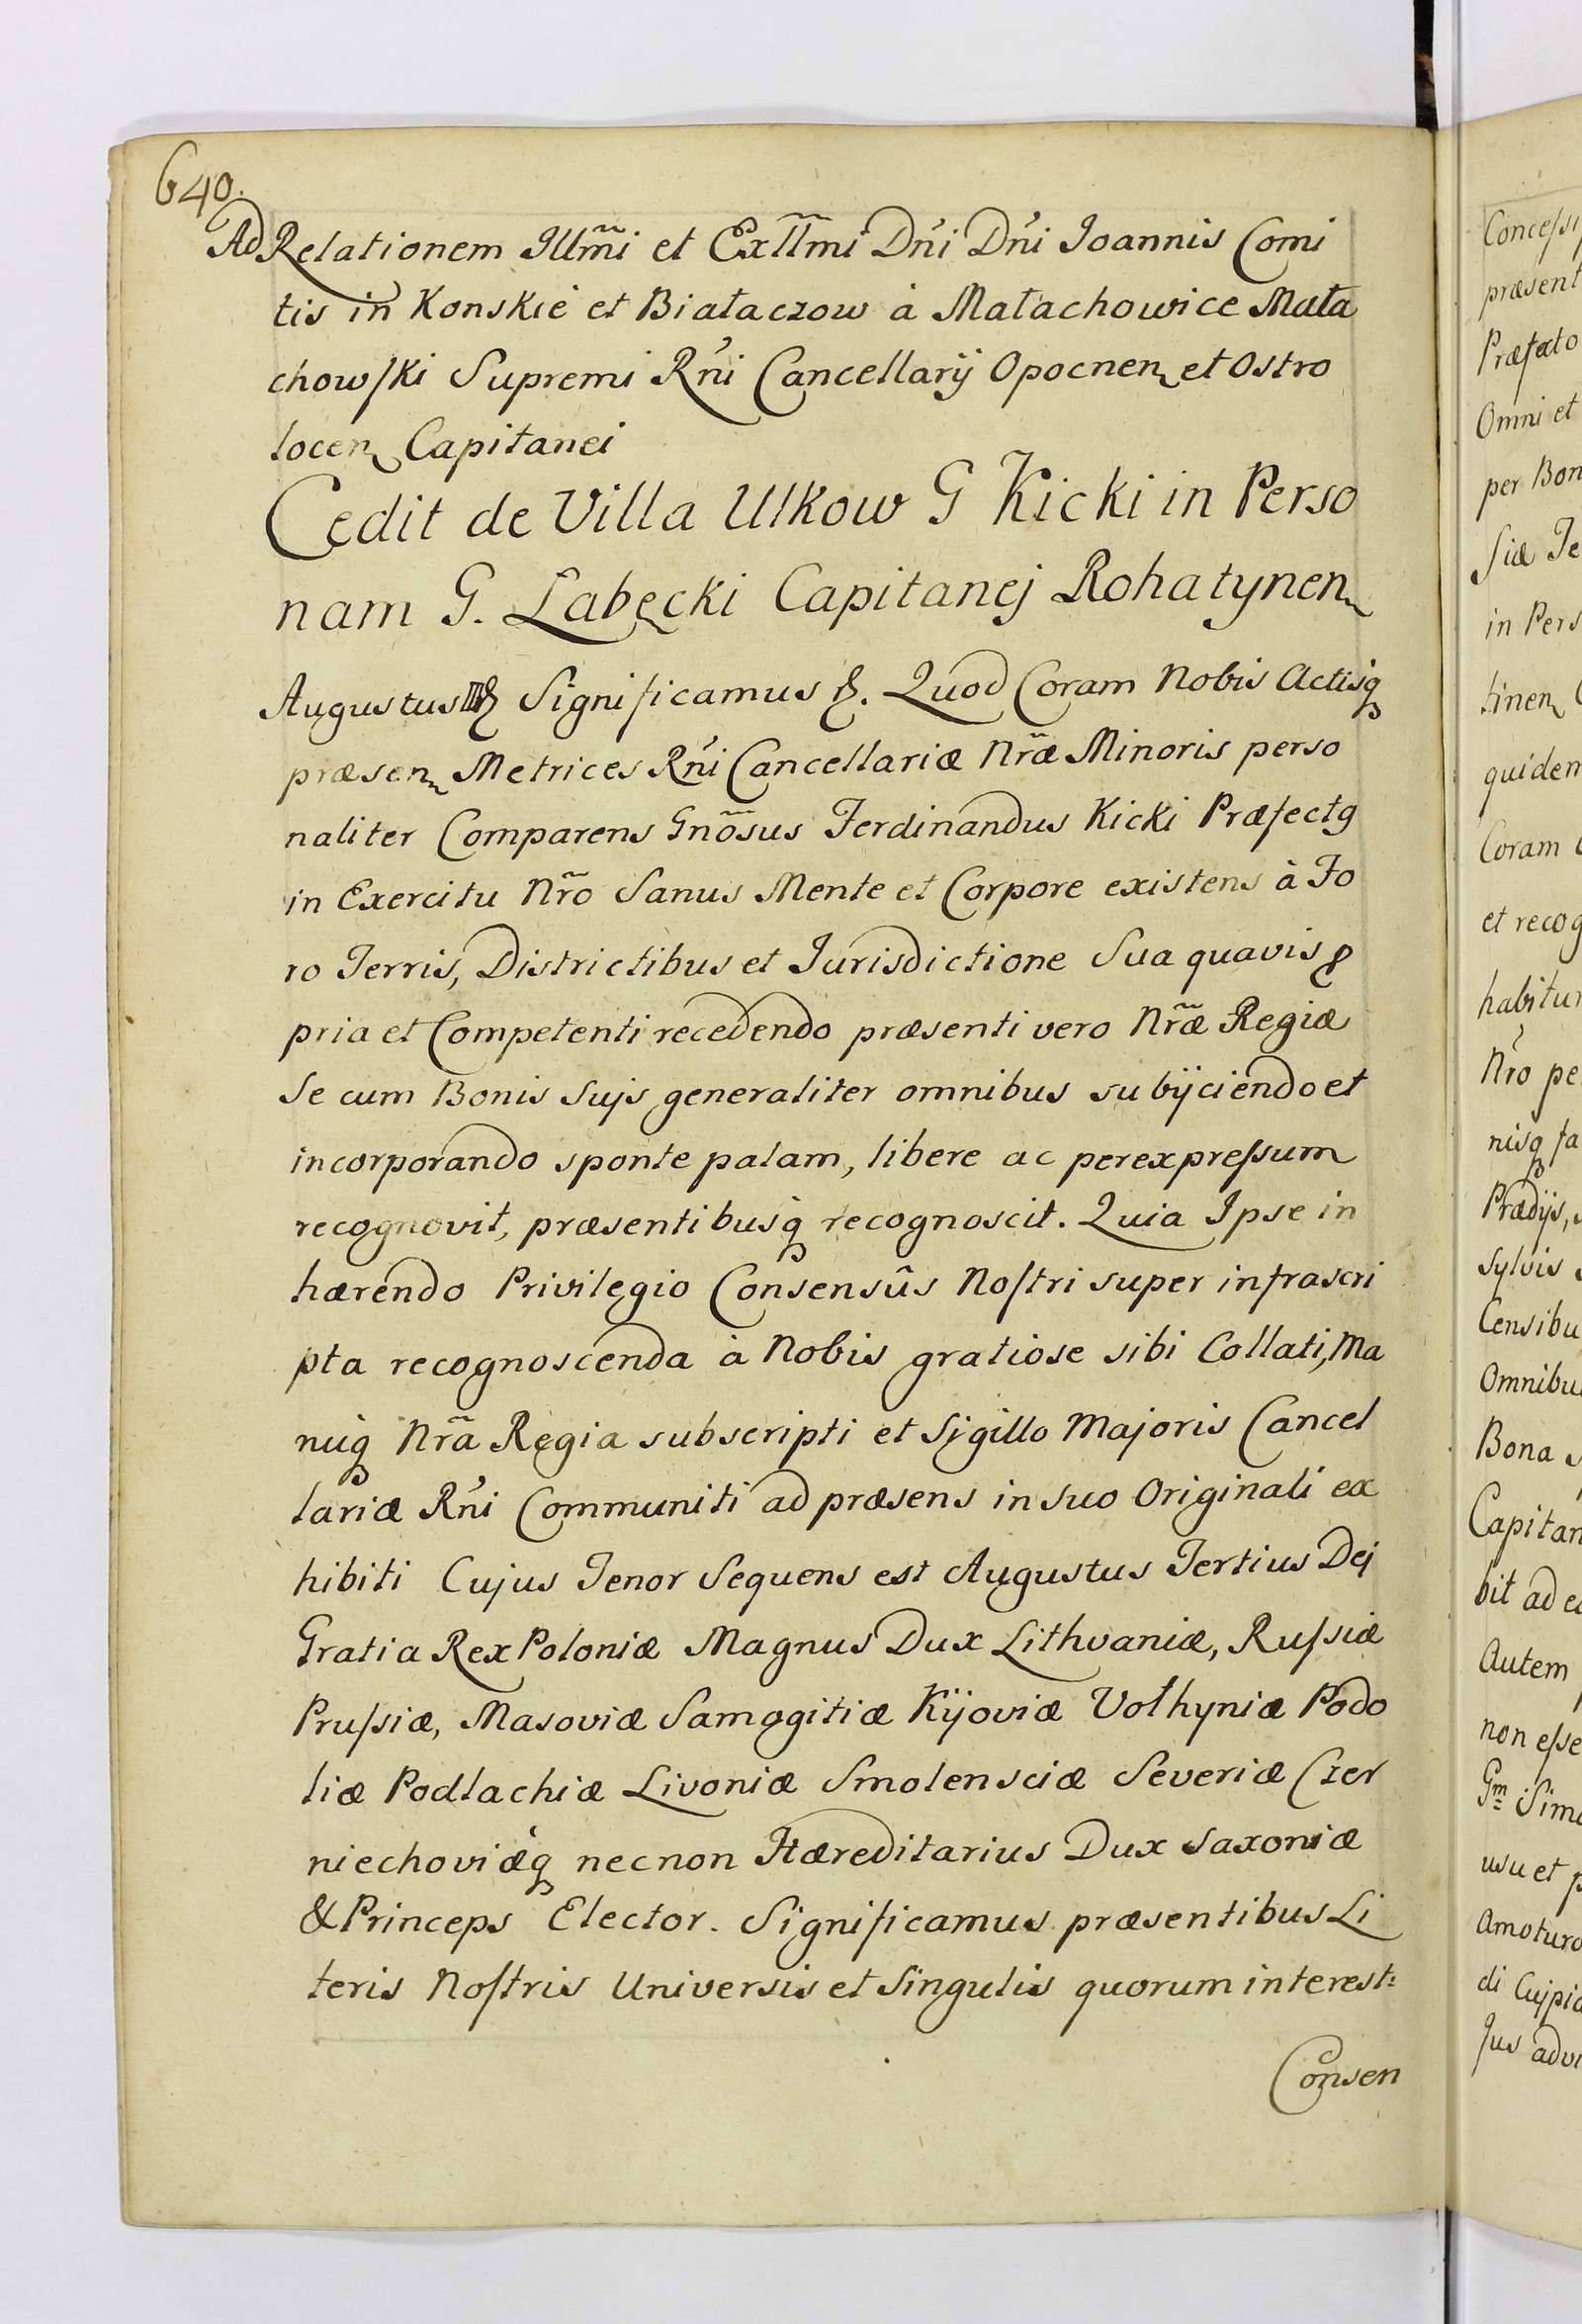 640.
Ad Relationem Jllm̃i et Exllm̃i Dńi Dńi Joannis Comi
tis in Konskie et Białaczow à Małachowice Mała
chowſki Supremi Rńi Cancellarij Opocnen et Ostro
locen Capitanei
Cedit de Villa Ulkow G Kicki in Perso
nam G. Łabęcki Capitanej Rohatynen
Augustus III Significamus &. Quod Coram Nobis Actisq
præsen Metrices Rńi Cancellariæ Nr̃æ Minoris perso
naliter Comparens Gnõsus Ferdinandus Kicki Præfectg
in Exercitu Nr̃o Sanus Mente et Corpore existens à Fo
ro Terris, Districtibus et Jurisdictione Sua quavis p
pria et Competenti recedendo præsenti vero Nr̃æ Regiæ
Se cum Bonis Sujs generaliter omnibus subijciendo et
incorporando sponte palam, libere ac perexpreſsum
recognovit, præsentibusq́ recognoscit. Quia Ipse in
hærendo Privilegio Consensûs Noſtri super infrascri
pta recognoscenda à Nobis gratiose sibi Collati, Ma
nuq́ Nr̃a Regia subscripti et Sigillo Majoris Cancel
lariæ Rńi Communiti ad præsens in suo Originali ex
hibiti Cujus Tenor Sequens est Augustus Tertius Dej
Gratia Rex Poloniæ Magnus Dux Lithvaniæ, Ruſsiæ
Pruſsiæ, Masoviæ Samogitiæ Kijoviæ Vołhyniæ Podo
liæ Podlachiæ Livoniæ Smolensciæ Severiæ Czer
niechoviæq́ necnon Hæreditarius Dux Saxoniæ
& Princeps Elector. Significamus præsentibus Li
teris Noſtris Universis et Singulis quorum interest:
Consen
præsent
Præfecto
Omni et
per Bon
ſiæ Te
in Pers
tinen
quidem
Coram
et recog
habitu
Nŕo pe
nisq fa
Prædijs,
Sylvis
Censibu
Omnibu
Bona
Capitan
bit ad
Autem
non eſse
Gm Sim
usu et
Amoturo
di Cujpia
Jus advi